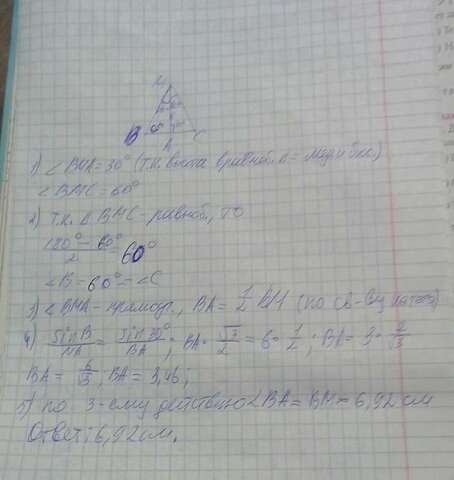 M
B C
A
1) ∠BMA = 30° (т.к. высота в равноб. Δ = мед и бис.)
∠BMC = 60°
2) т.к. Δ BMC - равноб., то
180° - 60° / 2 = 60°
∠B = 60° = ∠C
3) ∠BMA - прямоуг., BA = 1/2 BM (по св-ву катета)
4) sin B / MA = sin 30° / BA ; BA · √3/2 = 6 · 1/2 ; BA = 3 · 2/√3
BA = 6/√3 ; BA = 3,46 ;
5) по 3-ему действию 2BA = BM = 6,92 см
Ответ: 6,92 см.